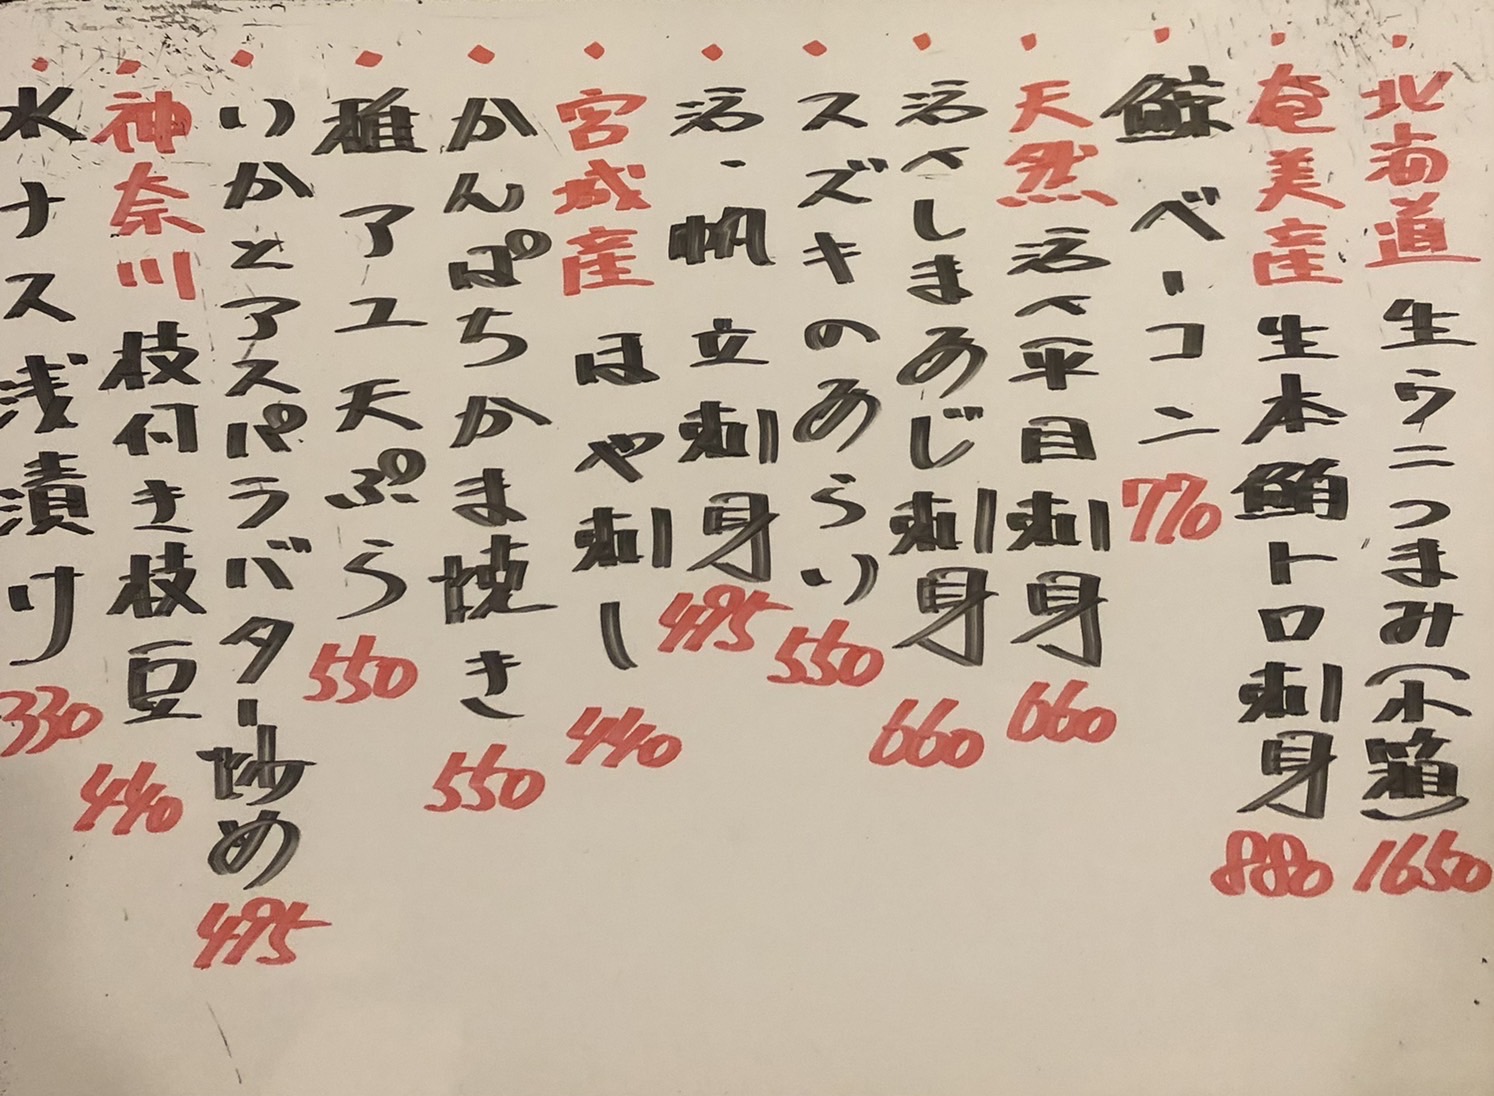 ・北海道 生ウニつまみ(小箱) 1650
・奄美産 生本鮪トロ刺身 880
・鯨ベーコン 770
・天然活〆平目刺身 660
・活〆しまあじ刺身 660
・スズキのあらい 550
・活・帆立刺身 495
・宮城産 ほや刺し 440
・かんぱちかま焼き 550
・稚アユ天ぷら 550
・いかとアスパラバター炒め 495
・神奈川 枝付き枝豆 440
・水ナス浅漬け 330